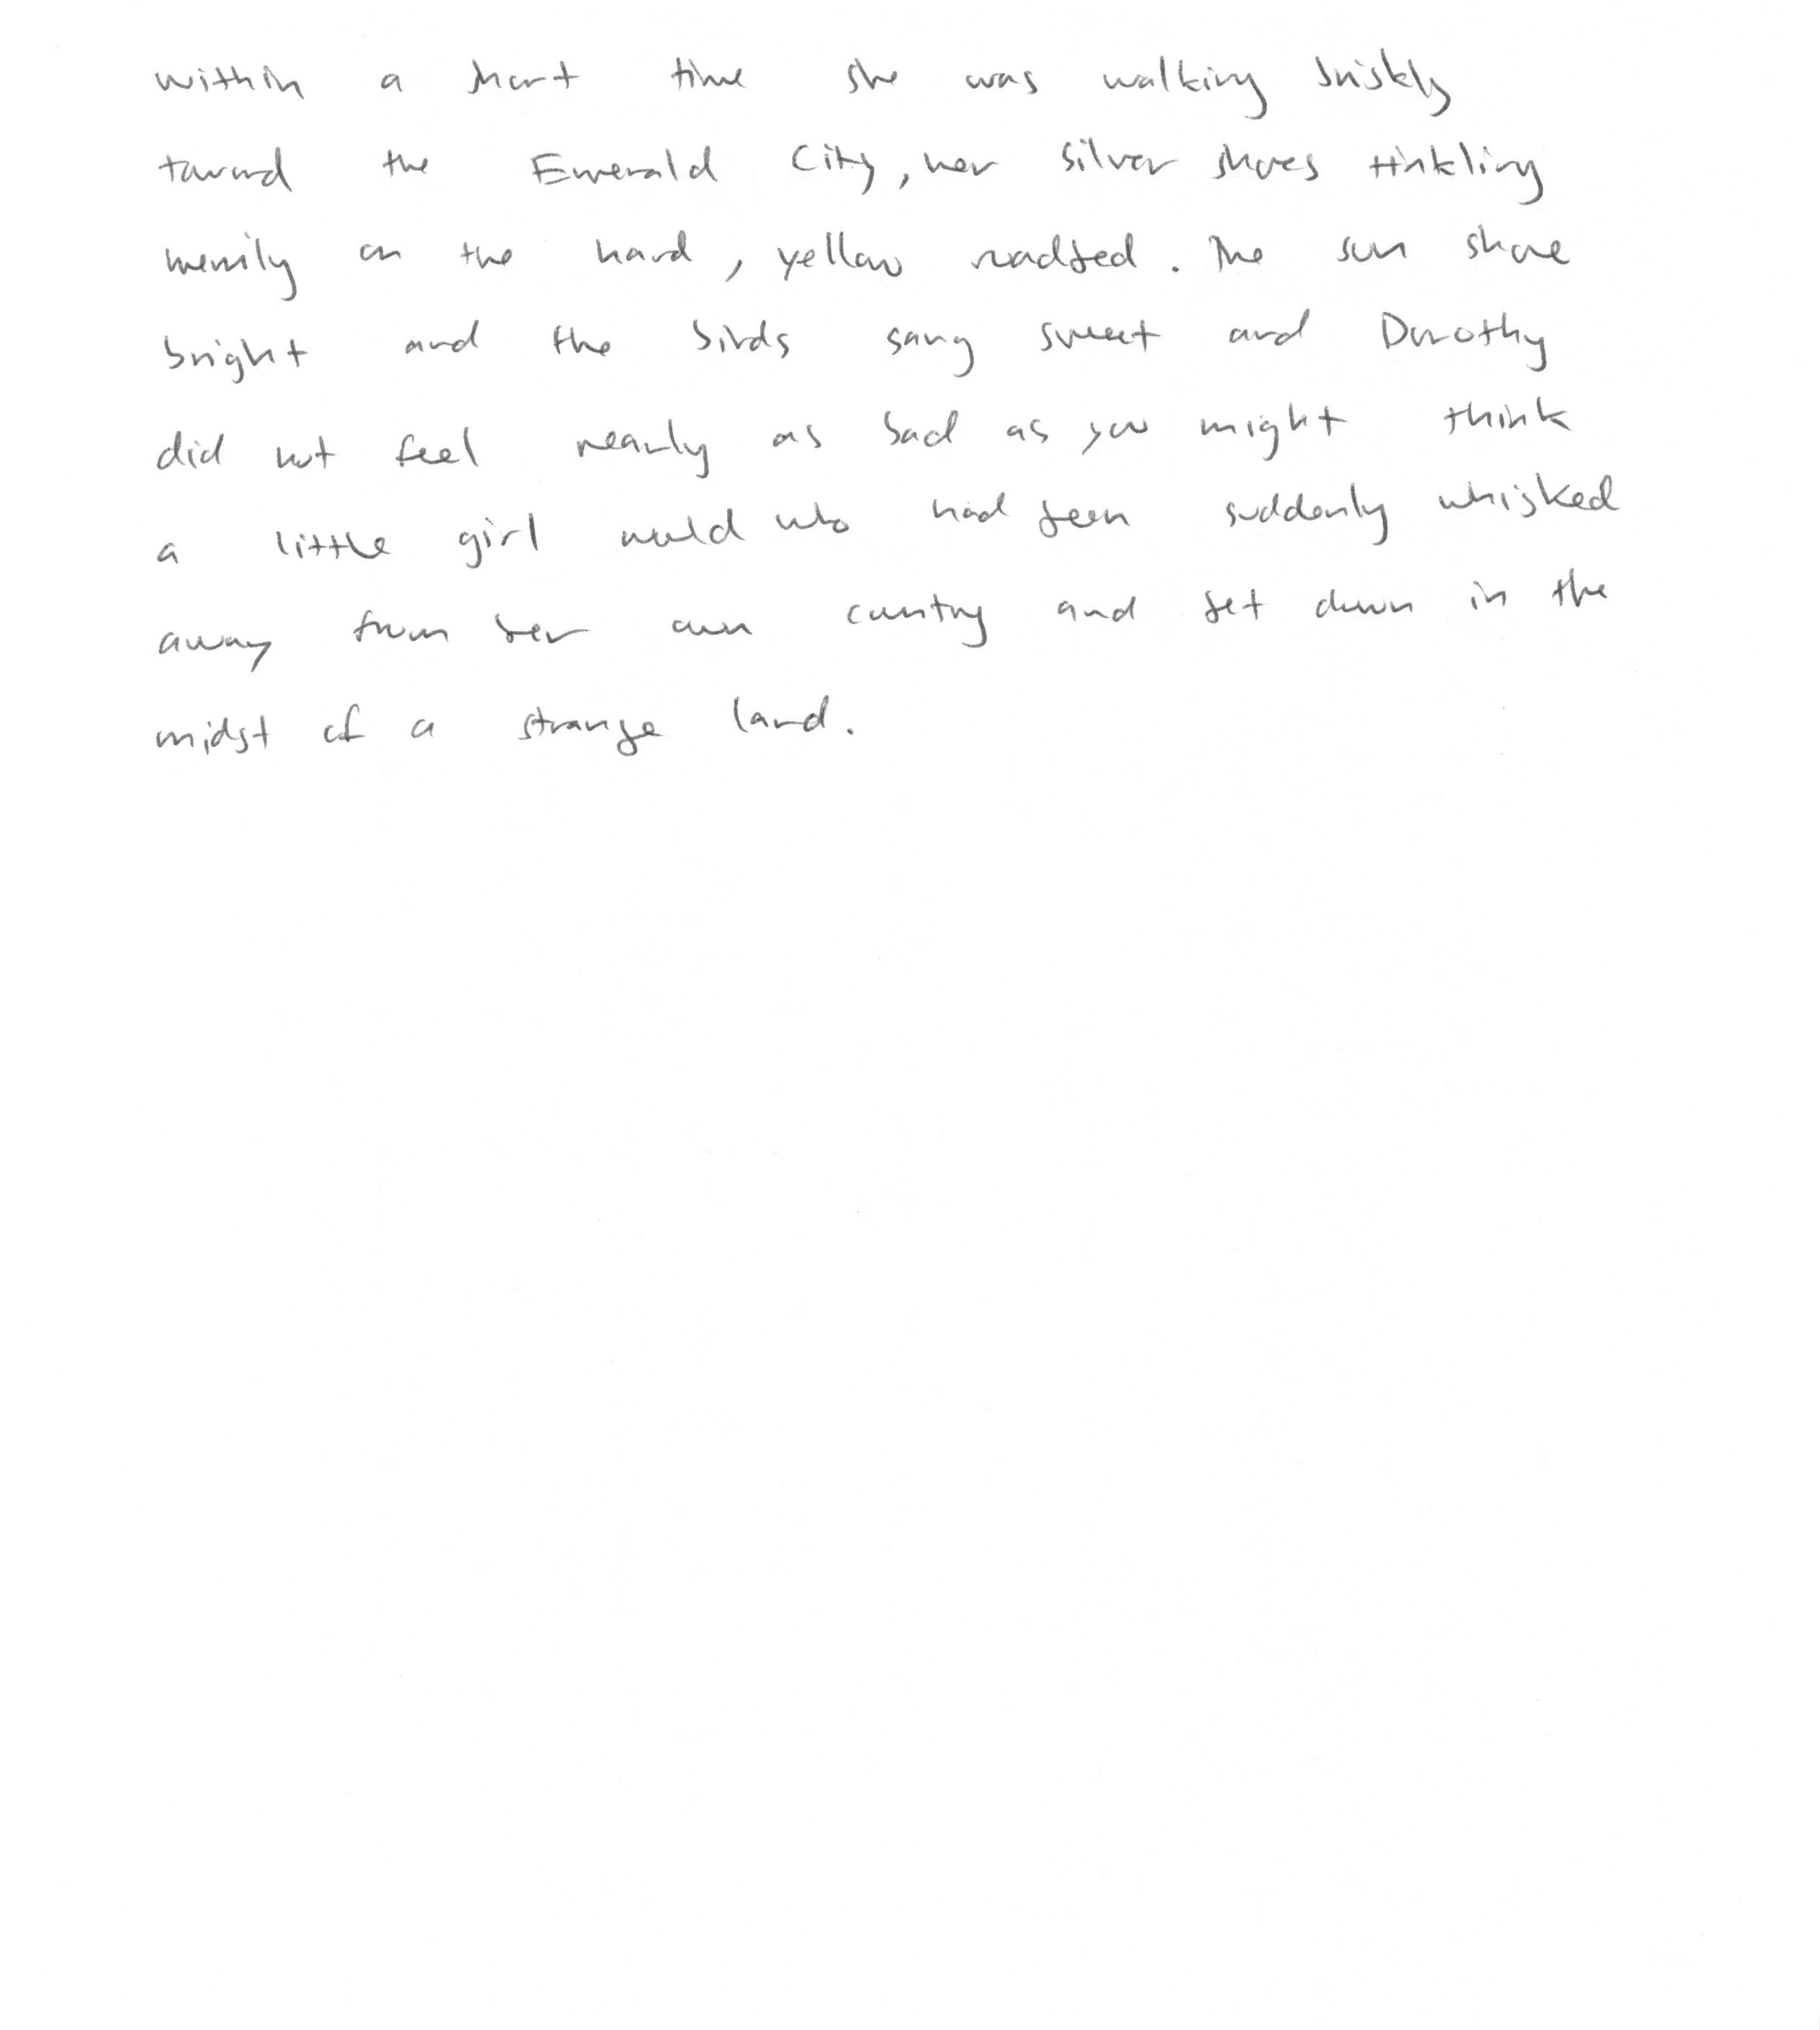 within a short time she was walking briskly
toward the Emerald City, her silver shoes tinkling
merrily on the hard, yellow roadbed. The sun shone
bright and the birds sang sweet and Dorothy
did not feel nearly as bad as you might think
a little girl would who had been suddenly whisked
away from her own country and set down in the
midst of a strange land.